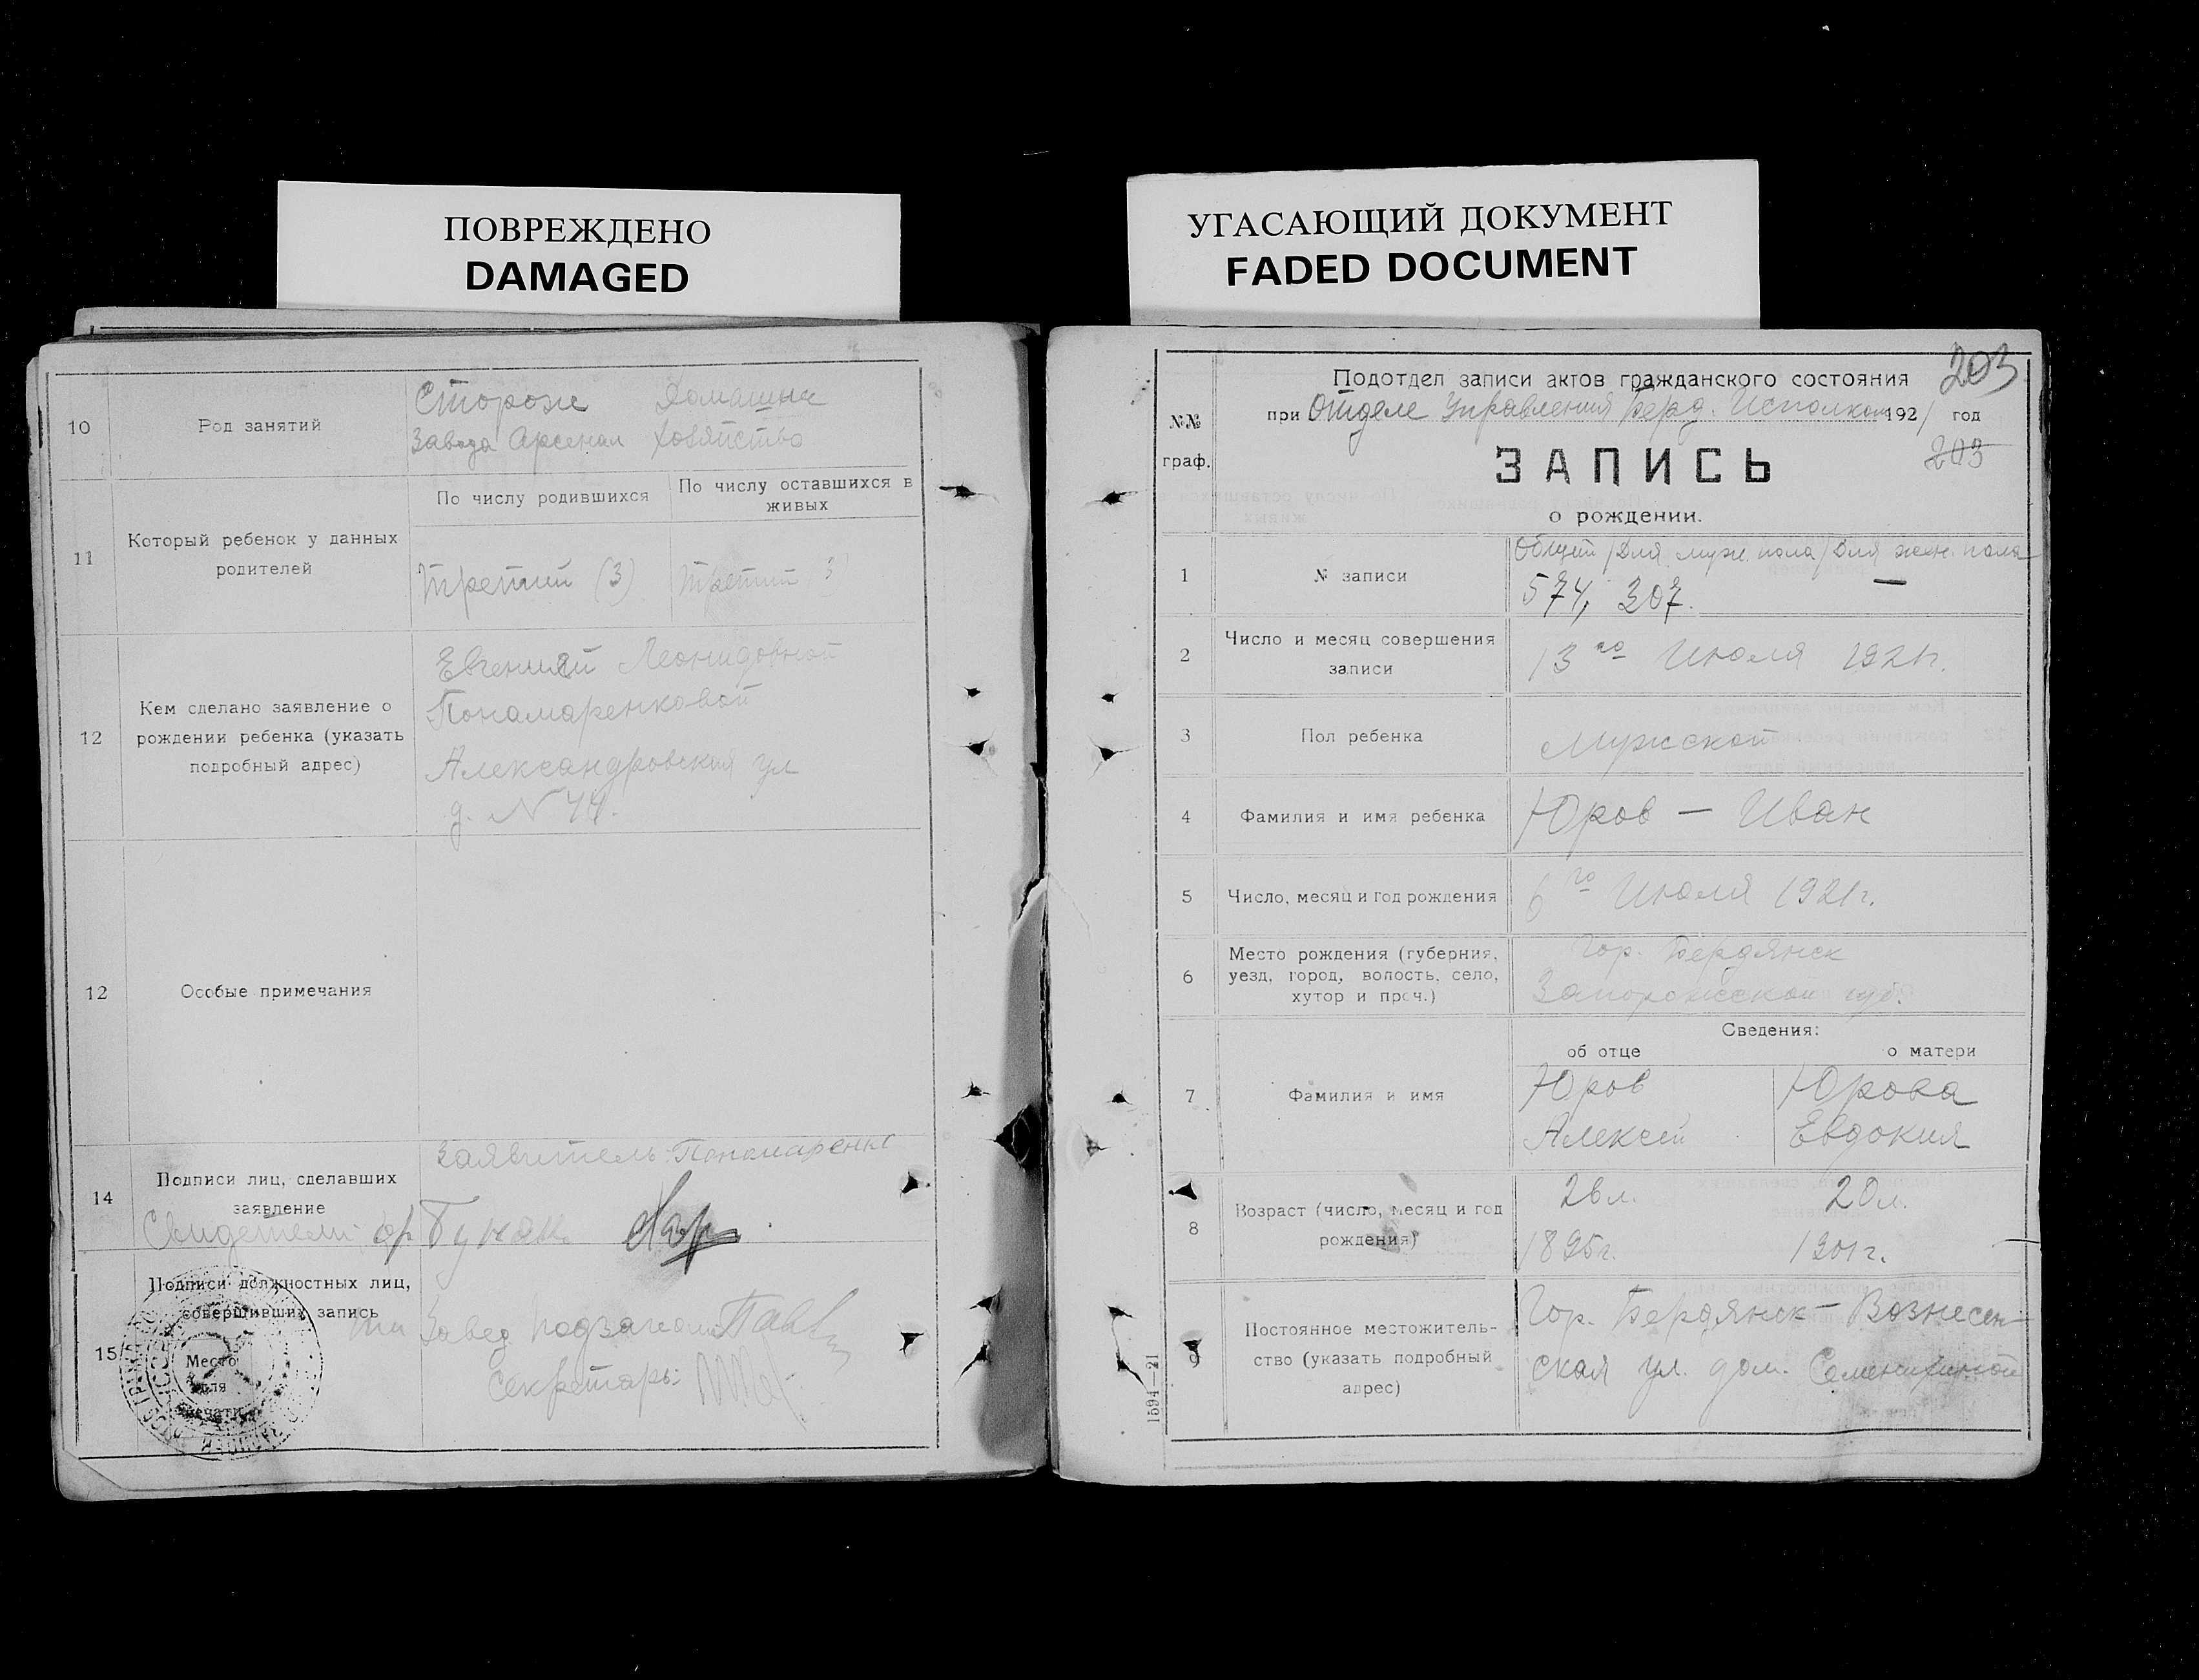 ПОВРЕЖДЕНО
DAMAGED
10
Род занятий
Сторож
Завода Арсенал
Домашнее
хозяйство
11
Который ребенок у данных
родителей
По числу родившихся
По числу оставшихся в
живых
Третий (3)
Третий 3
12
Кем сделано заявление о
рождении ребенка (указать
подробный адрес)
Евгенией Леонидовной
Понамаренковой
Александровская ул
д. № 44.
12
Особые примечания
14
Подписи лиц, сделавших
заявление
Заявитель: Пономаренко
Свидетели:
15
Подписи должностных лиц,
совершивших запись
Место
для
печати
Завед
Секретарь:
УГАСАЮЩИЙ ДОКУМЕНТ
FADED DOCUMENT
203
№№
граф.
Подотдел записи актов гражданского состояния
при Отделе Управления Берд. Исполком 1921 год
203
ЗАПИСЬ
о рождении.
1
№ записи
Общий / Для муж. пола / Для жен. пола
574, 307. —
2
Число и месяц совершения
записи
13го Июля 1921г.
3
Пол ребенка
Мужской
4
Фамилия и имя ребенка
Юров — Иван
5
Число, месяц и год рождения
6го Июля 1921г.
6
Место рождения (губерния,
уезд, город, волость, село,
хутор и проч.)
Гор. Бердянск
Запорожской губ.
Сведения:
об отце
о матери
7
Фамилия и имя
Юров
Алексей
Юрова
Евдокия
8
Возраст (число, месяц и год
рождения)
26 л.
1895г.
20 л.
1901г.
9
Постоянное местожитель-
ство (указать подробный
адрес)
Гор. Бердянск — Вознесен-
ская ул. дом.
1594—21